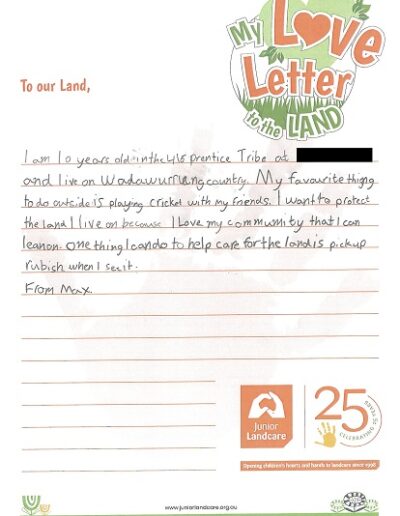 My Love
Letter
to the LAND
To our Land,
I am 10 years old in the 4/5 prentice Tribe at
and I live on Wadawurrung country. My favourite thing
to do outside is playing cricket with my friends. I want to protect
the land I live on because I Love my community that I can
lean on. one thing I can do to help care for the land is pick up
rubish when I see it.
From Max.
Junior
Landcare
25
CELEBRATING 25 YEARS
Opening children's hearts and hands to landcare since 1998
www.juniorlandcare.org.au